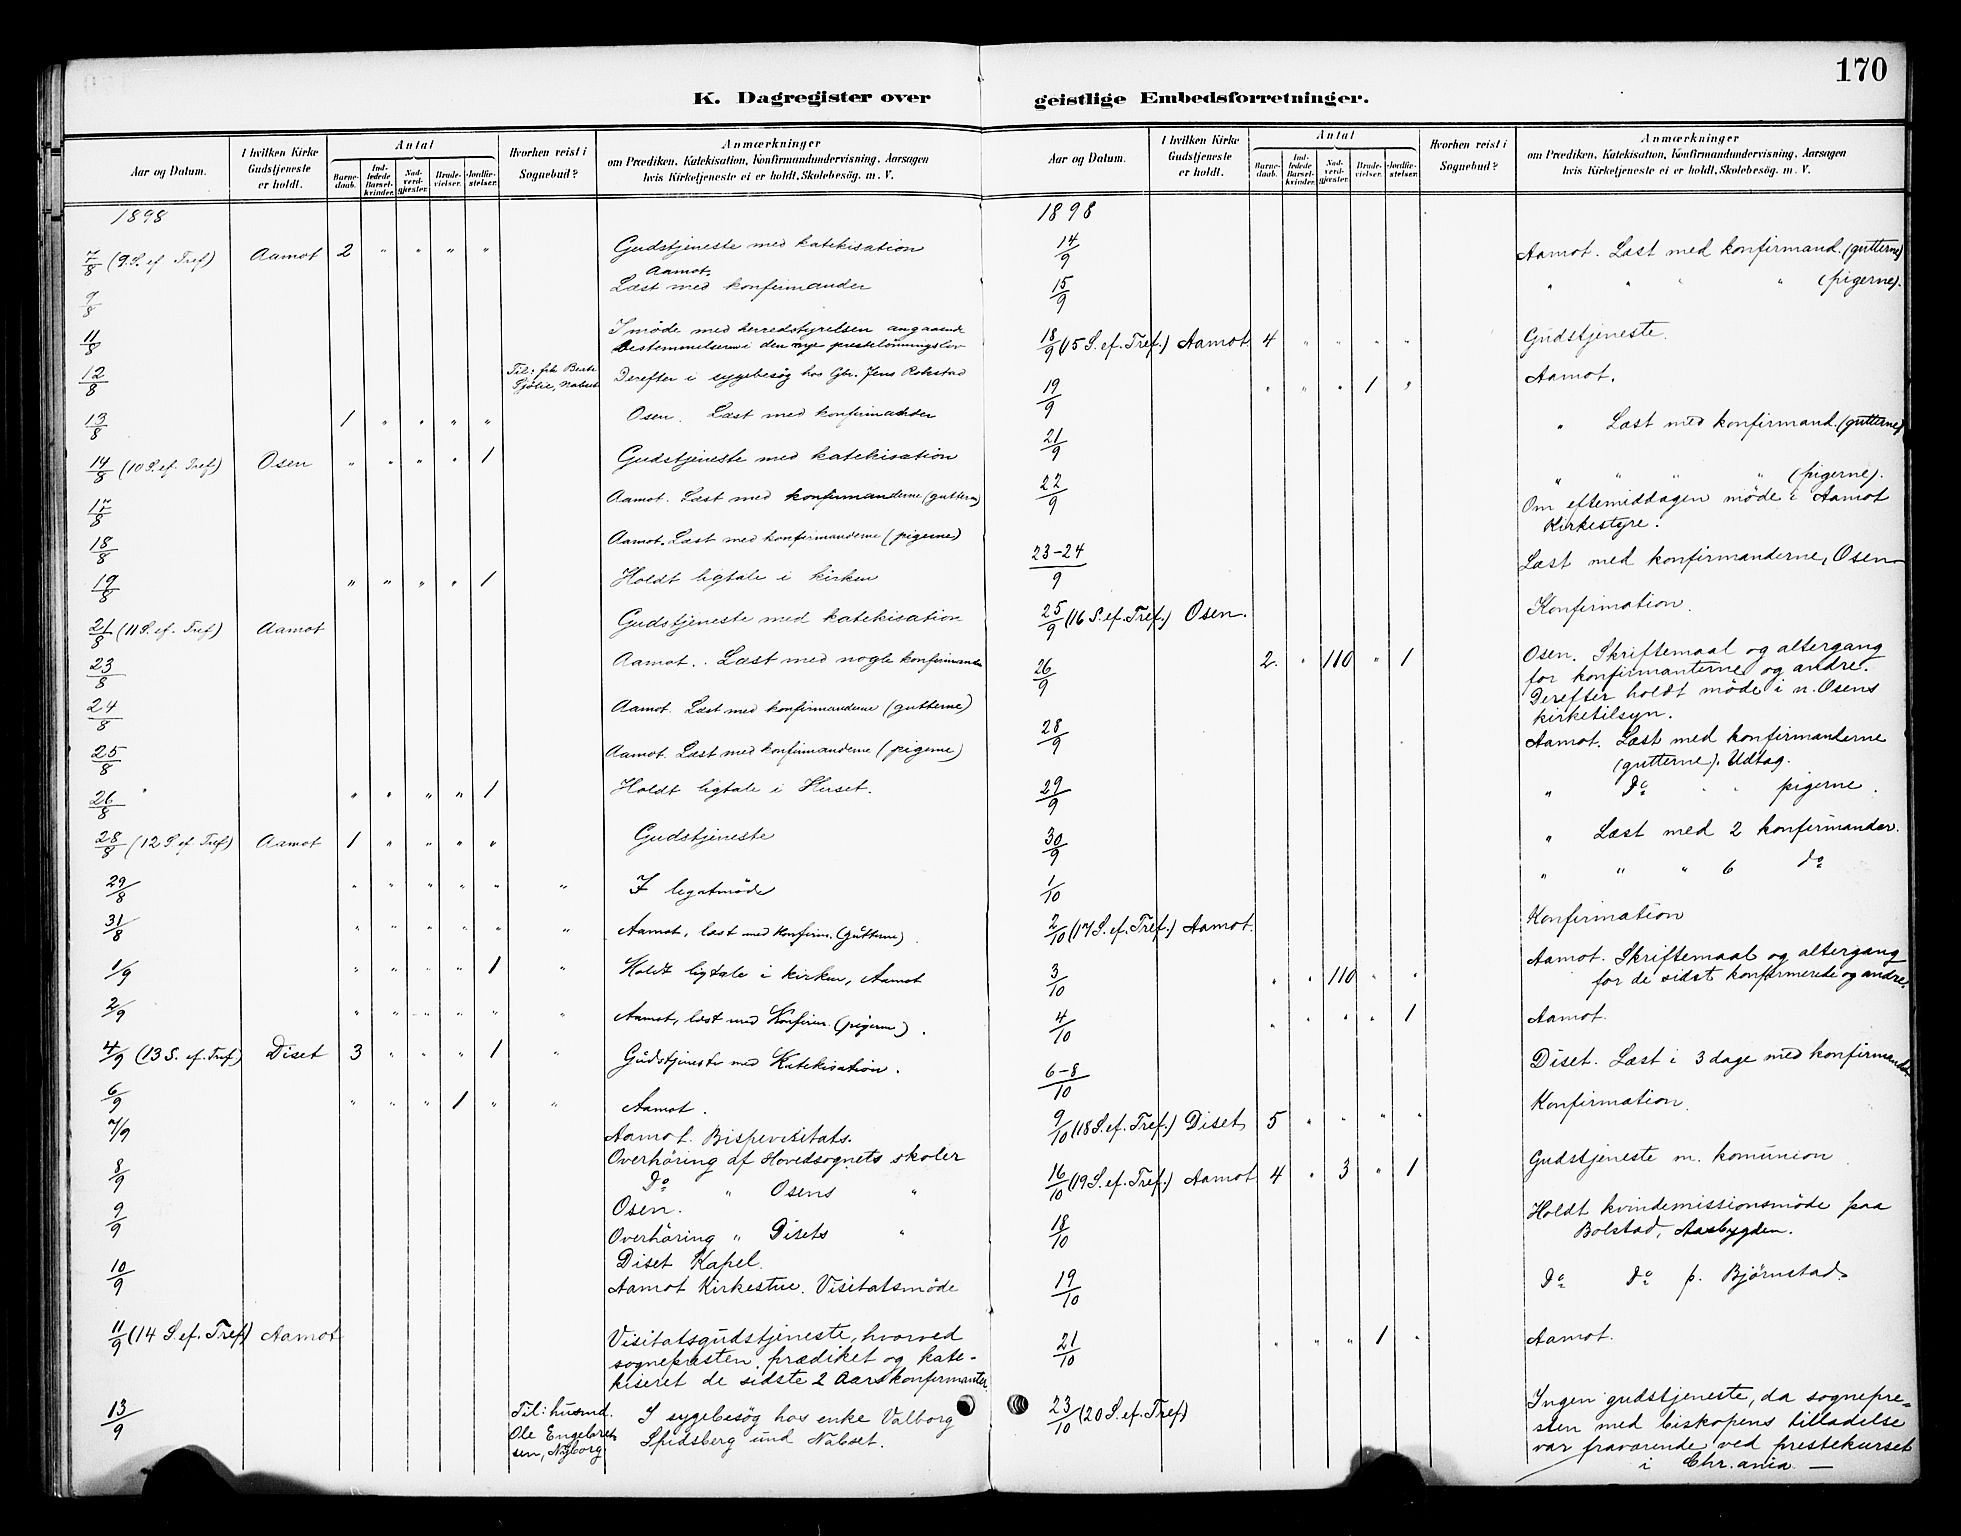 170
K. Dagregister over geistlige Embedsforretninger.
Aar og Datum.
I hvilken Kirke Gudstjeneste er holdt.
Antal
Barne-daab.
Ind-ledede Barsel-kvinder.
Nad-verd-gjester.
Brude-vielser.
Jordfæ-stelser.
Hvorhen reist i Sognebud?
Anmærkninger
om Prædiken, Katekisation, Konfirmandundervisning, Aarsagen
hvis Kirketjeneste ei er holdt, Skolebesøg. m. V.
1898
7/8 (9 S. ef Tref) Aamot 2 " " " " Gudstjeneste med katekisation
9/8 Aamot. Læst med konfirmander
11/8 I møde med herredstyrelsen angaaende
bestemmelserne i den nye prestelønningslov
12/8 Derefter i sygebesøg hos Gbr. Jens Rokstad
13/8 1 " " " " Osen. Læst med konfirmander
14/8 (10 S. ef. Tref) Osen " " " " 1 Gudstjeneste med katekisation
17/8 Aamot. Læst med konfirmanderne (guttern)
18/8 Aamot. Læst med konfirmanderne (pigerne)
19/8 " " " " 1 Holdt ligtale i kirken
21/8 (11 S. ef. Tref) Aamot Gudstjeneste med katekisation
23/8 Aamot. Læst med nogle konfirmander
24/8 Aamot. Læst med konfirmanderne (gutterne)
25/8 Aamot. Læst med konfirmanderne (pigerne)
26/8 " " " " 1 Holdt ligtale i Herset.
28/8 (12 S. ef Tref) Aamot 1 " " " " Gudstjeneste
29/8 " " " " " " I legatmøde
31/8 " " " " " " Aamot, læst med konfirm. (gutterne).
1/9 " " " " 1 " Holdt ligtale i kirken, Aamot
2/9 " " " " " " Aamot, læst med Konfirm. (pigerne).
4/9 (13 S. ef. Tref) Diset 3 " " " 1 " Gudstjeneste med Katekisation.
6/9 " " " 1 " " Aamot.
7/9 Aamot. Bispevisitats.
Overhøring af Hovedsognets skoler
8/9 Do " Osens "
Osen.
9/9 Overhøring " Disets "
Diset Kapel.
10/9 Aamot Kirkestue. Visitatsmøde
11/9 (14 S. ef. Tref) Aamot Visitatsgudstjeneste, hvorved
sognepresten prædiket og kate-
kiseret de sidste 2 Aars konfirmanter
13/9 Til: husmd. Ole Engebret-sen, Nyborg I sygebesøg hos enke Valborg
Spidsberg und Nabset.
Aar og Datum.
I hvilken Kirke Gudstjeneste er holdt.
Antal
Barne-daab.
Ind-ledede Barsel-kvinder.
Nad-verd-gjester.
Brude-vielser.
Jordfæ-stelser.
Hvorhen reist i Sognebud?
Anmærkninger
om Prædiken, Katekisation, Konfirmandundervisning, Aarsagen
hvis Kirketjeneste ei er holdt, Skolebesøg. m. V.
1898
14/9 Aamot. Læst med konfirmand. (gutterne)
15/9 " " " " (pigerne).
18/9 (15 S. ef. Tref.) Aamot 4 " " " " Gudstjeneste.
19/9 " " " 1 " Aamot.
21/9 " Læst med konfirmand. (gutterne)
22/9 " " " " (pigerne).
Om eftemiddagen møde i Aamot
Kirkestyre.
23-24/9 Læst med konfirmanderne, Osen
25/9 (16 S. ef. Tref.) Osen. Konfirmation.
26/9 2. " 110 " 1 Osen. Skriftemaal og altergang
for konfirmanterne og andre.
Derefter holdt møde i n. Osens
kirketilsyn.
28/9 Aamot. Læst med konfirmanderne
(gutterne). Udtag.
29/9 " Do " " pigerne.
30/9 " Læst med 2 konfirmander.
1/10 " " " 6 do
2/10 (17 S. ef. Tref.) Aamot. Konfirmation
3/10 " " 110 " " Aamot. Skriftemaal og altergang
for de sidst konfirmerede og andre.
4/10 " " " " 1 Aamot.
6-8/10 Diset. Læst i 3 dage med konfirmander
9/10 (18 S. ef. Tref.) Diset 5 " " " " Konfirmation.
16/10 (19 S. ef. Tref.) Aamot 4 " 3 " 1 Gudstjeneste m. komunion.
18/10 Holdt kvindemissionsmøde paa
Bolstad, Aasbygden.
19/10 Do Do p. Bjørnstad
21/10 " " " 1 " Aamot.
23/10 (20 S. ef. Tref) Ingen gudstjeneste, da sognepre-
sten med biskopens tilladelse
var fraværende ved prestekurset
i Chr.ania. —